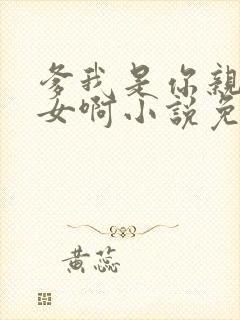 爹我是你親
女啊小說免
黄蕊